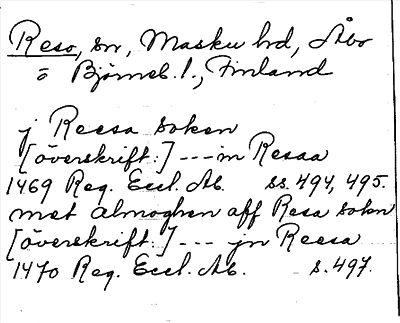 Reso, sn, Masku hd, Åbo
o Björneb. l., Finland
j Reesa soken
[överskrift:] --- in Resaa
1469 Reg. Eccl. Ab. ss. 494, 495.
met almoghen aff Resa sokn
[överskrift:] --- jn Reesa
1470 Reg. Eccl. Ab. s. 497.